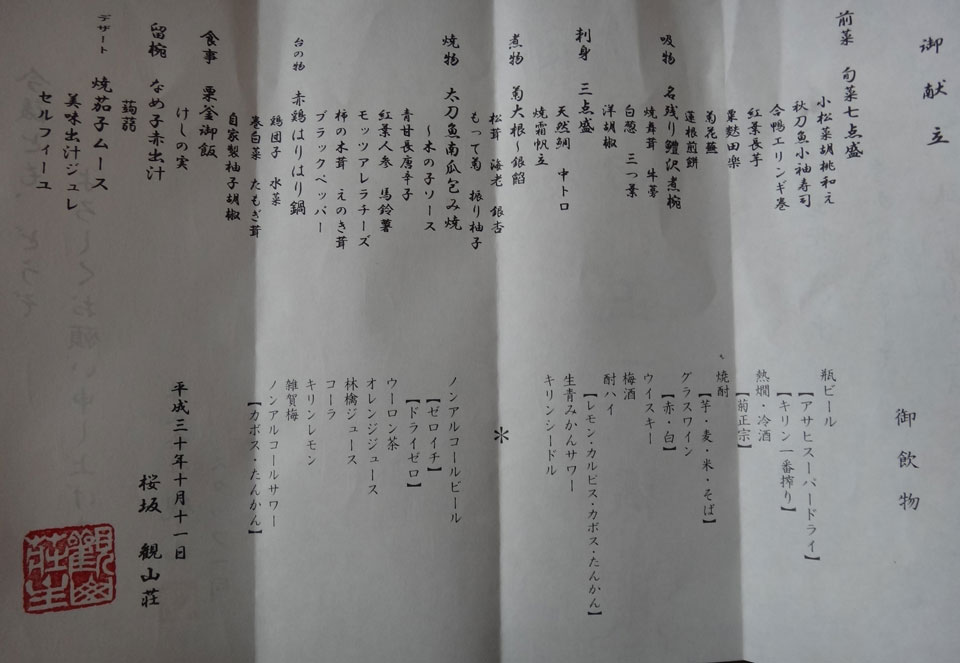 御献立
前菜　旬菜七点盛
小松菜胡桃和え
秋刀魚小袖寿司
合鴨エリンギ巻
紅葉長芋
粟麩田楽
蓮根煎餅
菊花蕪
吸物　名残り鱧沢煮椀
焼舞茸　牛蒡
白葱　三つ葉
洋胡椒
刺身　三点盛
天然鯛　中トロ
焼霜帆立
煮物　菊大根～銀餡
松茸　海老　銀杏
もって菊　振り柚子
焼物　太刀魚南瓜包み焼
～木の子ソース
青甘長唐辛子
紅葉人参　馬鈴薯
モッツアレラチーズ
柿の木茸　えのき茸
ブラックペッパー
台の物　赤鶏はりはり鍋
鶏団子　水菜
巻白菜　たもぎ茸
自家製柚子胡椒
食事　栗釜御飯
けしの実
留椀　なめ子赤出汁
蒟蒻
デザート　焼茄子ムース
美味出汁ジュレ
セルフィーユ
御飲物
瓶ビール
【アサヒスーパードライ】
【キリン一番搾り】
熱燗・冷酒
【菊正宗】
焼酎
【芋・麦・米・そば】
グラスワイン
【赤・白】
ウイスキー
梅酒
酎ハイ
【レモン・カルピス・カボス・たんかん】
生青みかんサワー
キリンシードル
＊
ノンアルコールビール
【ゼロイチ】
【ドライゼロ】
ウーロン茶
オレンジジュース
林檎ジュース
コーラ
キリンレモン
雑賀梅
ノンアルコールサワー
【カボス・たんかん】
平成三十年十月十一日
桜坂　観山荘